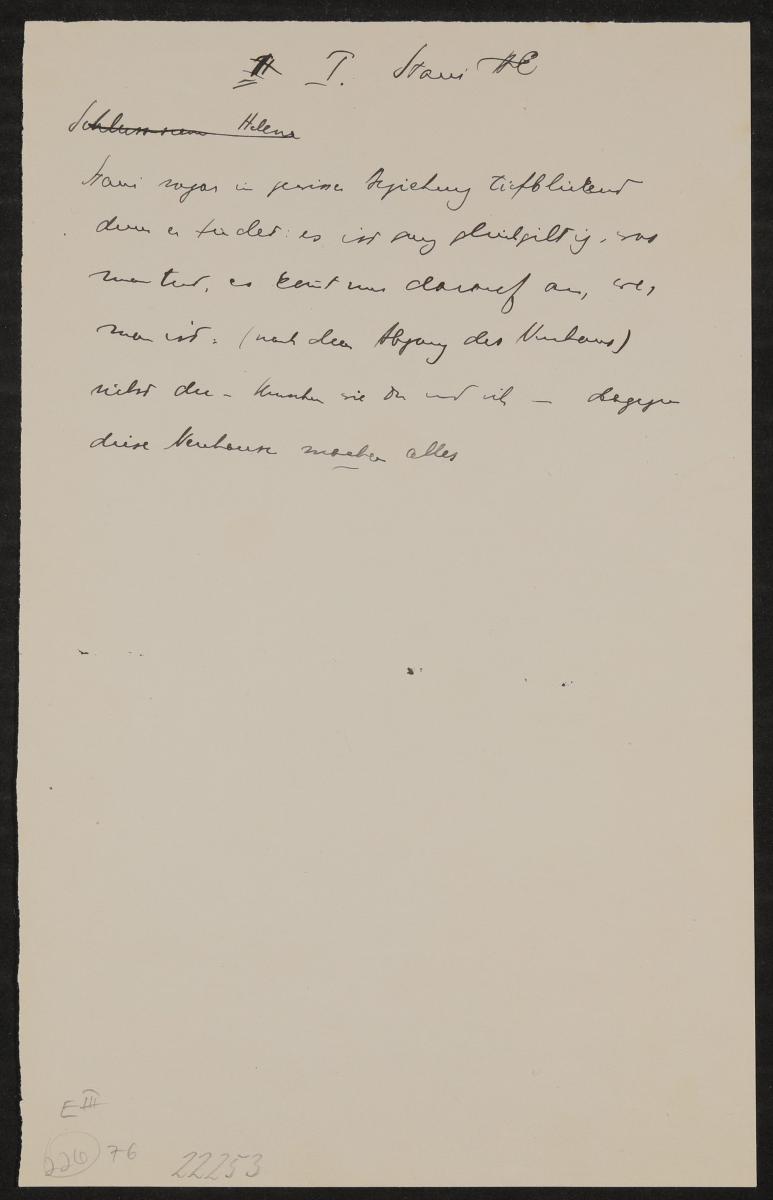 I. Stani HK
Schlussscene Helene
Stani sogar in gewisser Beziehung tiefblickend
denn er findet: es ist ganz gleichgiltig, was
man tut, es komt nur darauf an, wer
man ist. (nach dem Abgang des Neuhaus)
siehst du – Menschen wie Du und ich – dagegen
diese Neuhause machen alles
E III
226 76 22253